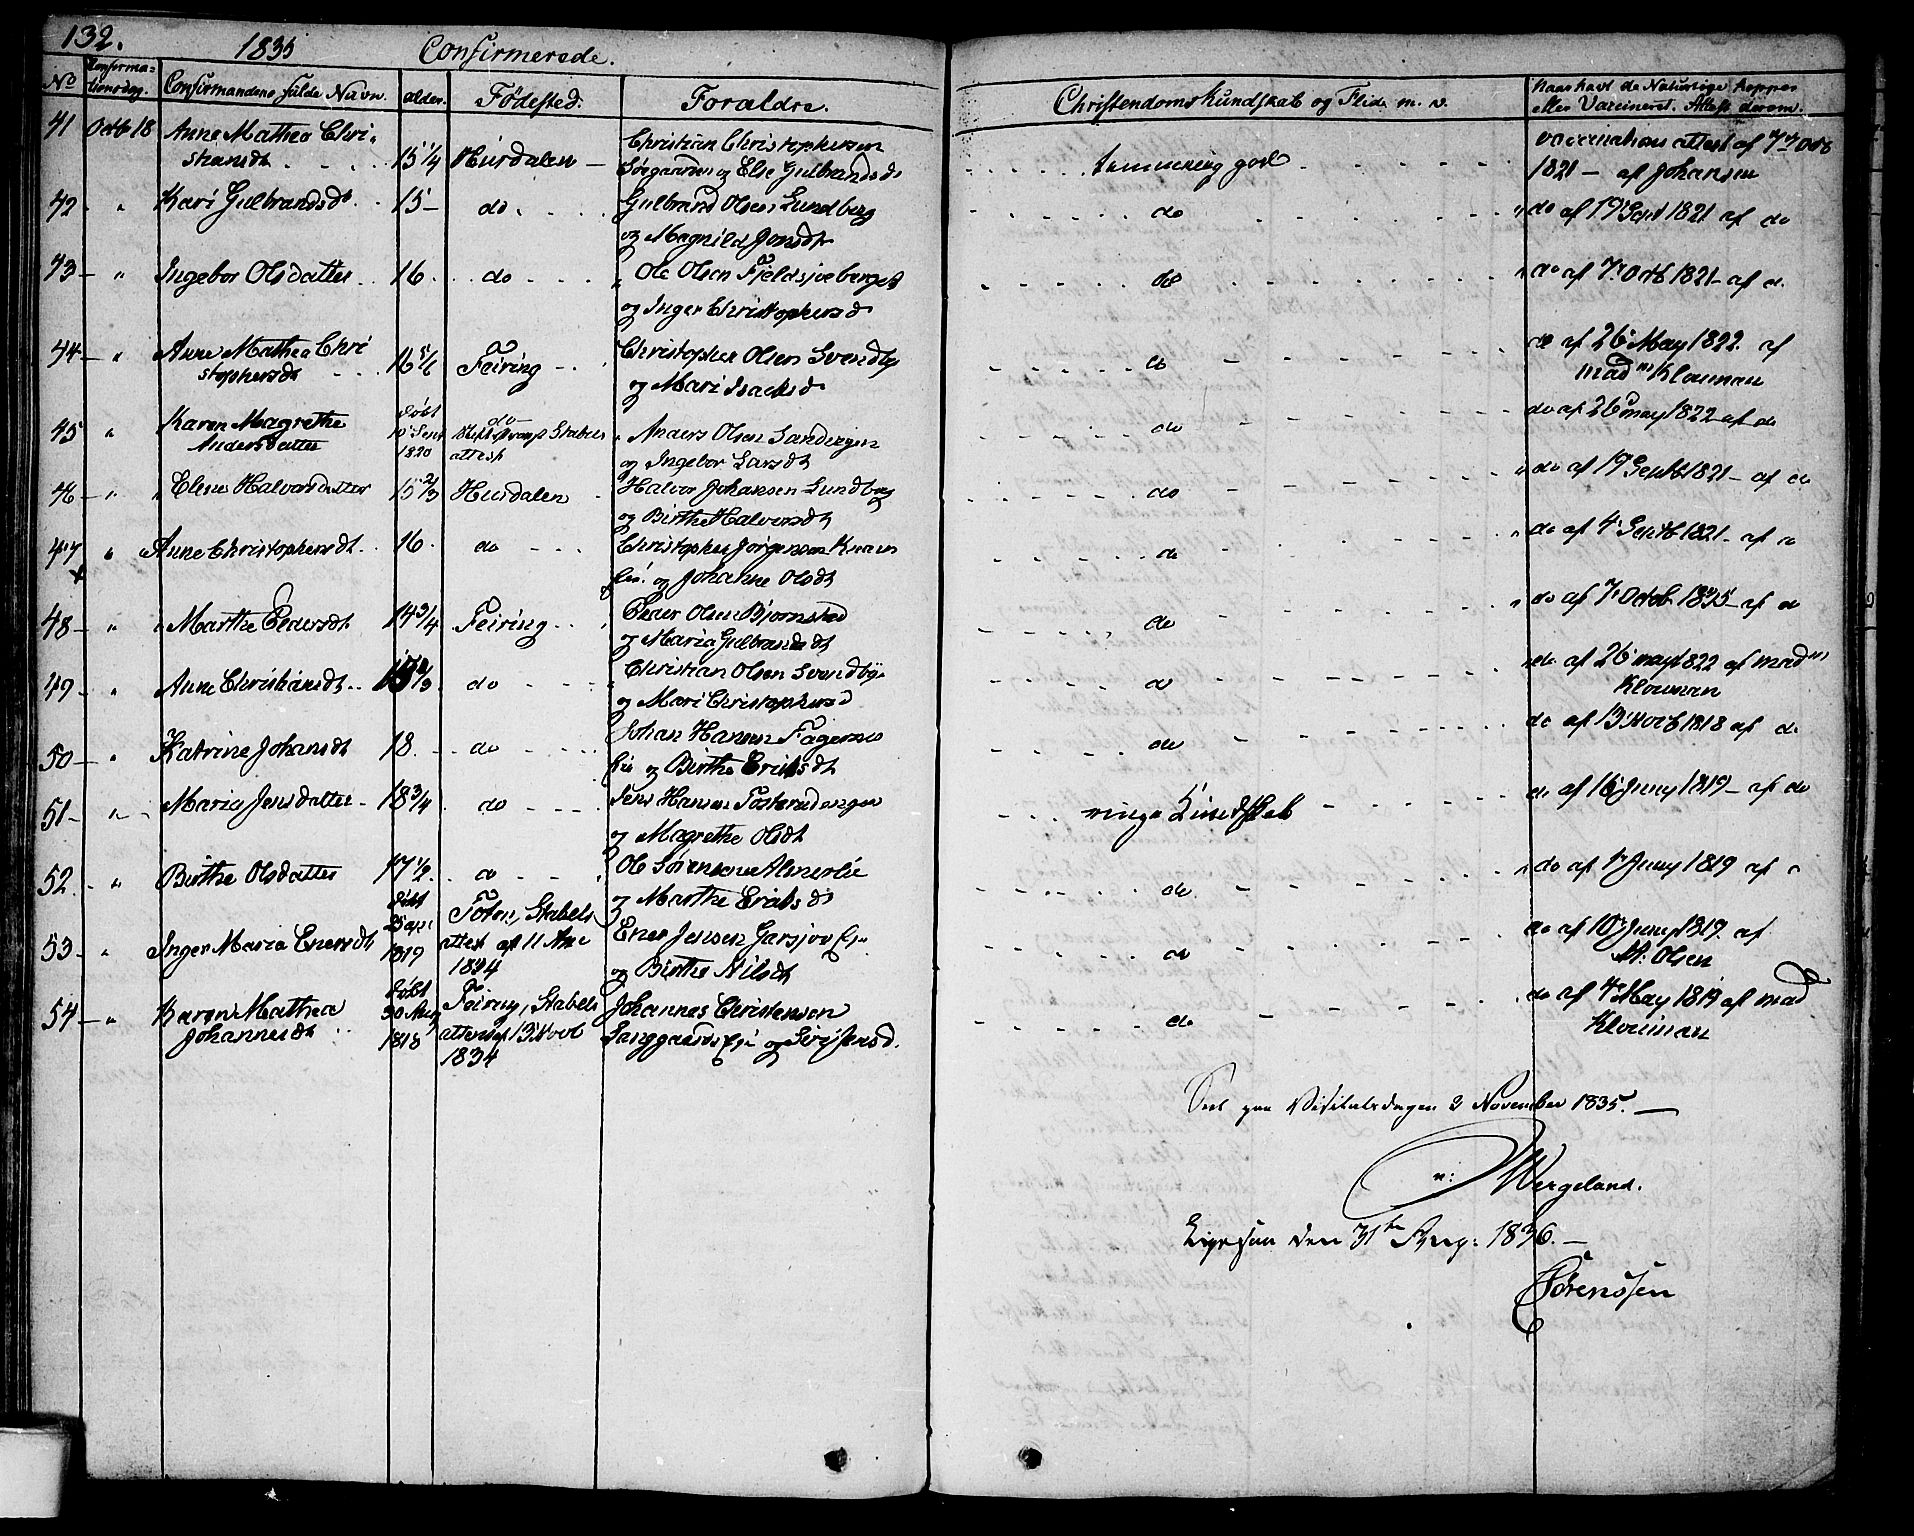 132.
1835 Confirmerede.
No Confirma-tionsdag. Confirmandens fulde Navn. alder. Fødested. Forældre. Christendoms Kundskab og Flid m. v. Naar havt de Naturlige Kopper
eller Vaccineret. Attest derom.
41 Octb 18 Anne Mathea Chri- Christian Christophersen vaccinations attest af 7 Octb
stiansdt 15 1/4 Hurdalen og Else Gulbrandsd temmelig god 1821 - af Johansen
42 " Kari Gulbrandsdt 15 do Gulbrand Olsen Lundberg do do af 19 Sept 1821 af do
og Magnild Jonsdt
43 " Ingebor Olsdatter 16 do Ole Olsen Fjeldsjøeberget do do af 7 Octb 1821 af d.
og Inger Christophersd
44 " Anne Mathea Chri 16 5/6 Feiring Christopher Olsen Svendby do do af 26 May 1822. af
stophersdt og Mari Isacksd Mad Klouman
45 " Karen Magrethe født do Anders Olsen do do af 26 may 1822 af do
Andersdatter 1820 attest og Ingebor Larsdt
46 " Elene Halvorsdatter 15 2/3 Hurdalen Halvor Johansen Lundberg do do af 19 Septb 1821 - af do
og Birthe Halvorsdt
47 " Anne Christophersdt 16 do Christopher Jørgensen do do af 4 Septb 1821 - af
og Johanne Olsdt
48 " Marthe Pedersdt 14 3/4 Feiring Peder Olsen Bjørnstad do do af 7 Octob 1835 - af do
og Maria Gulbrandsdt
49 " Anne Christiansdt do Christian Olsen Svendbye do do af 26 may 1822 af mad
og Mari Christophersd Klouman
50 " Katrine Johansdt 18 do Johan Hansen do do af 13 Novb 1818 af do
og Birthe Eriksdt
51 " Maria Jensdatter 18 3/4 do Jens Hansen do af 16 Juny 1819 - af do
og Magrethe Olsdt ringe Kundskab
52 " Birthe Olsdatter 17 1/2 do Ole Sørensen do do af 1 Juny 1819 af
og Marthe Eriksdt
53 " Inger Maria Enersdt født 1819 Toten, Stabels Ener Jensen do do af 10 Juny 1819. af
attest af 11 1834 og Birthe Nilsdt Olsen
54 " Karen Mathea født Feiring, Stabels Johannes Christensen do do af 4 May 1819 af mad
Johannesdt 1818 attest af 13 Novb og Klouman
1834
Seet paa Visitatsdagen 2 November 1835. -
n: Wergeland.
Ligesaa den 31te Aug: 1836. -
Sørenssen